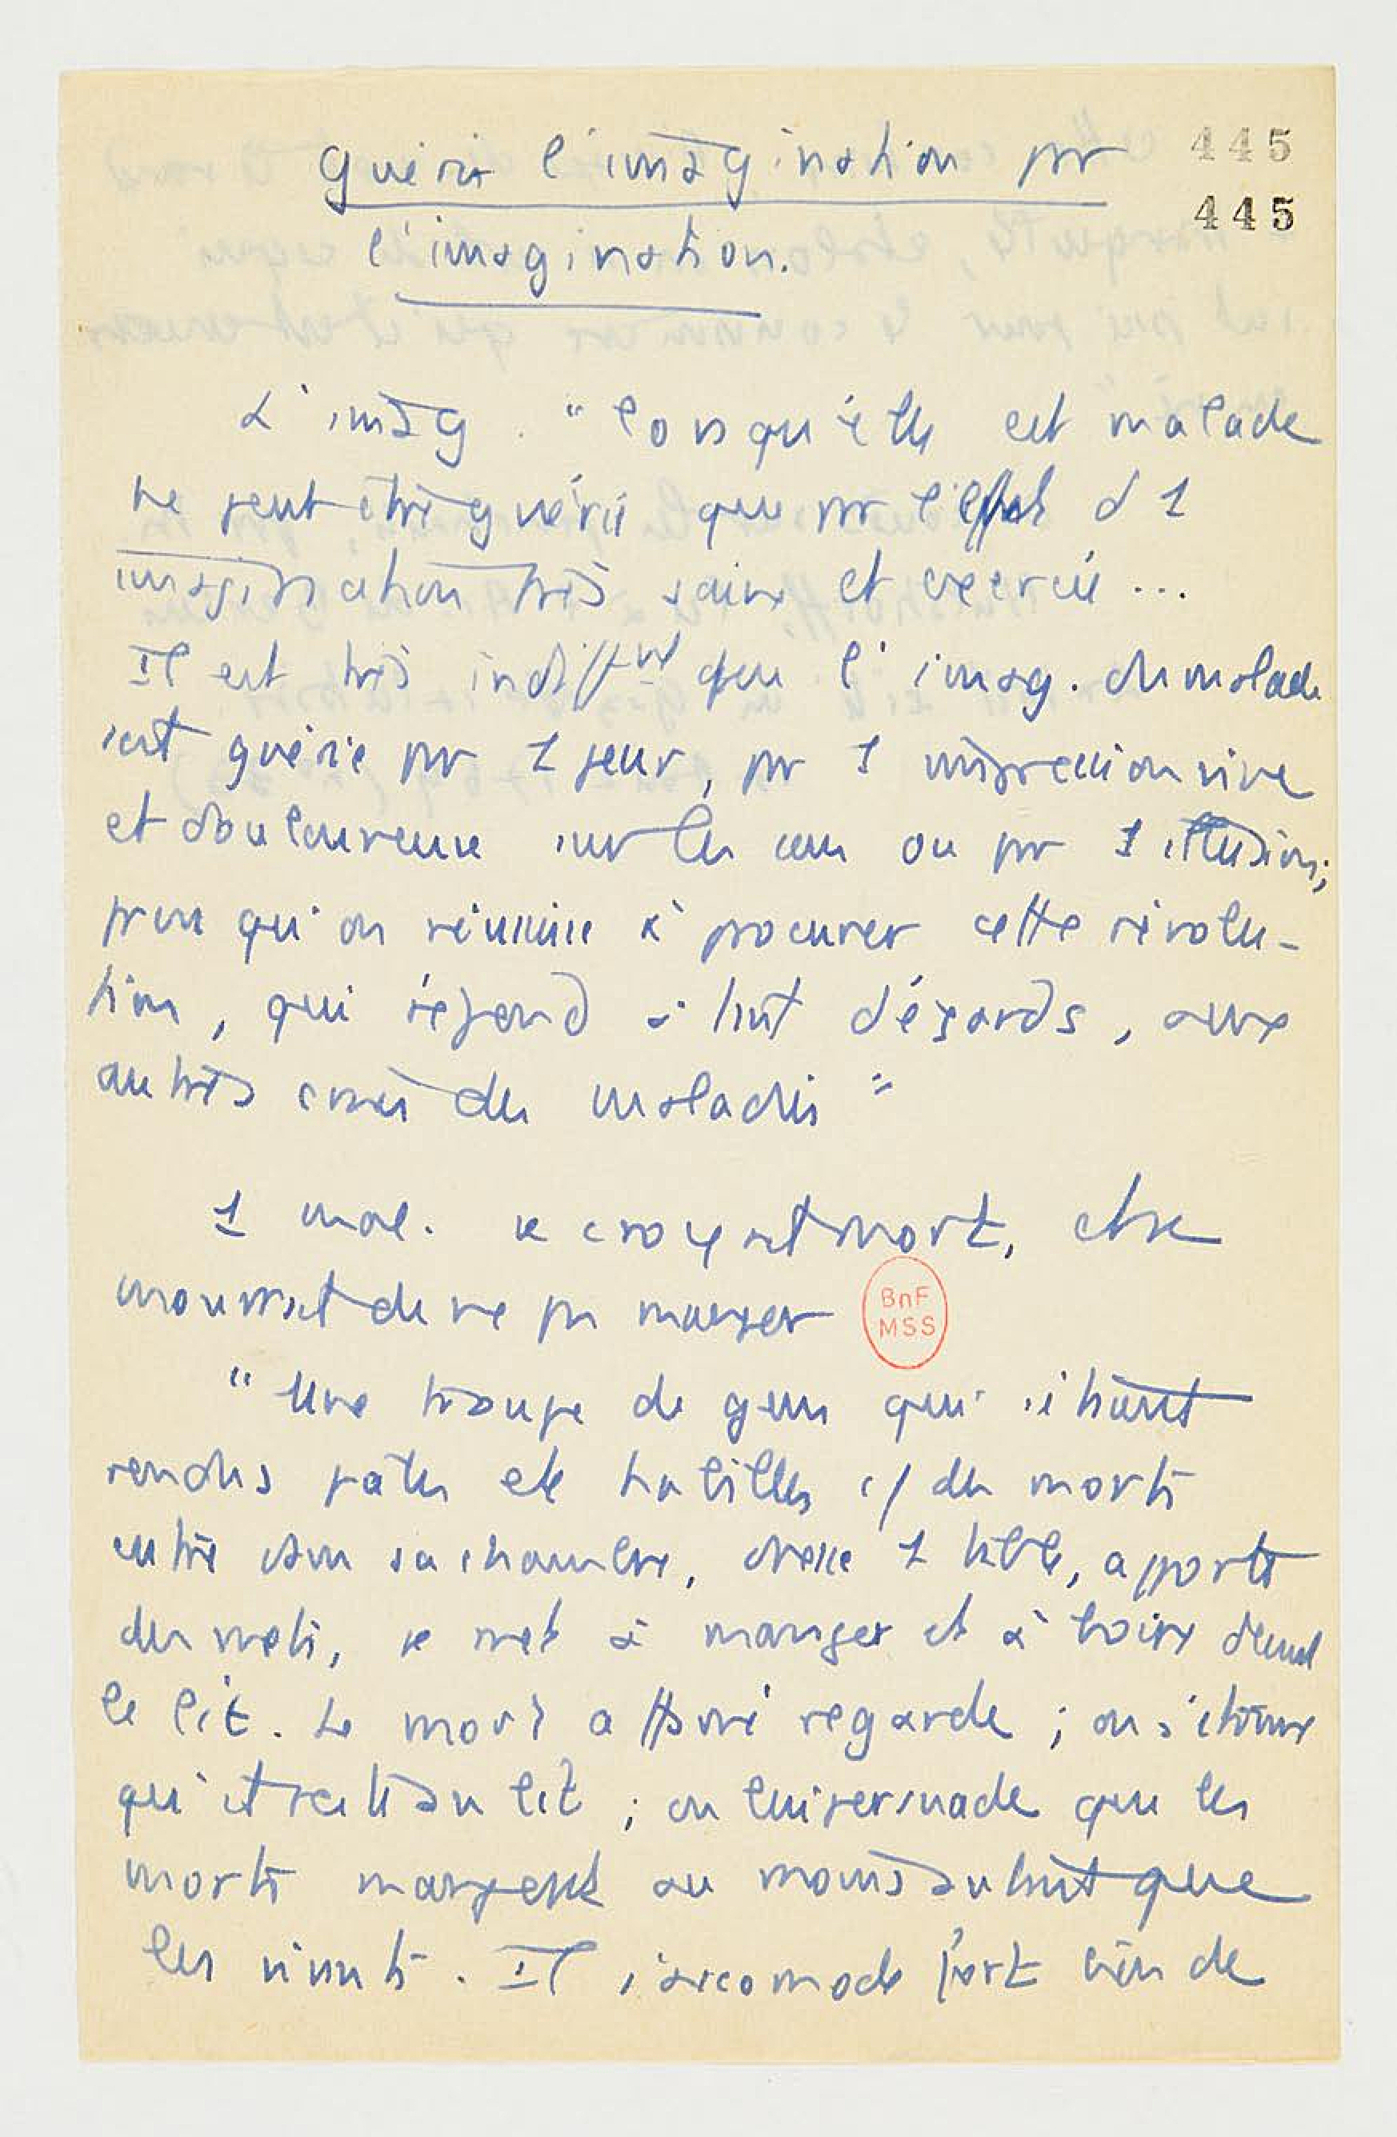 Guérir l'imagination pr
445
445
l'imagination.
L'imag. "lorsqu'elle est malade
ne peut être guérie que pr l'effet d 1
imagination très saine et exercée ...
Il est très indifft que l'imag. du malade
soit guérie pr 1 peur, pr 1 impression vive
et douloureuse sur les sens ou pr 1 illusion;
pvu qu'on réussisse à procurer cette révolu-
tion, qui répond à tint d'égards, aux
autres crises des maladies"
1 mal. se croyait mort, et se
mourrait de ne pas manger
BnF
MSS
"Une troupe de gens qui s'étaient
rendus pâles et habillés c/ des morts
entre dans sa chambre, dresse 1 table, apporte
des mets, se met à manger et à boire devant
le lit. Le mort affamé regarde ; on s'étonne
qu'il reste au lit ; on lui persuade que les
morts mangent au moins autant que
les vivants. Il s'accomode fort bien de